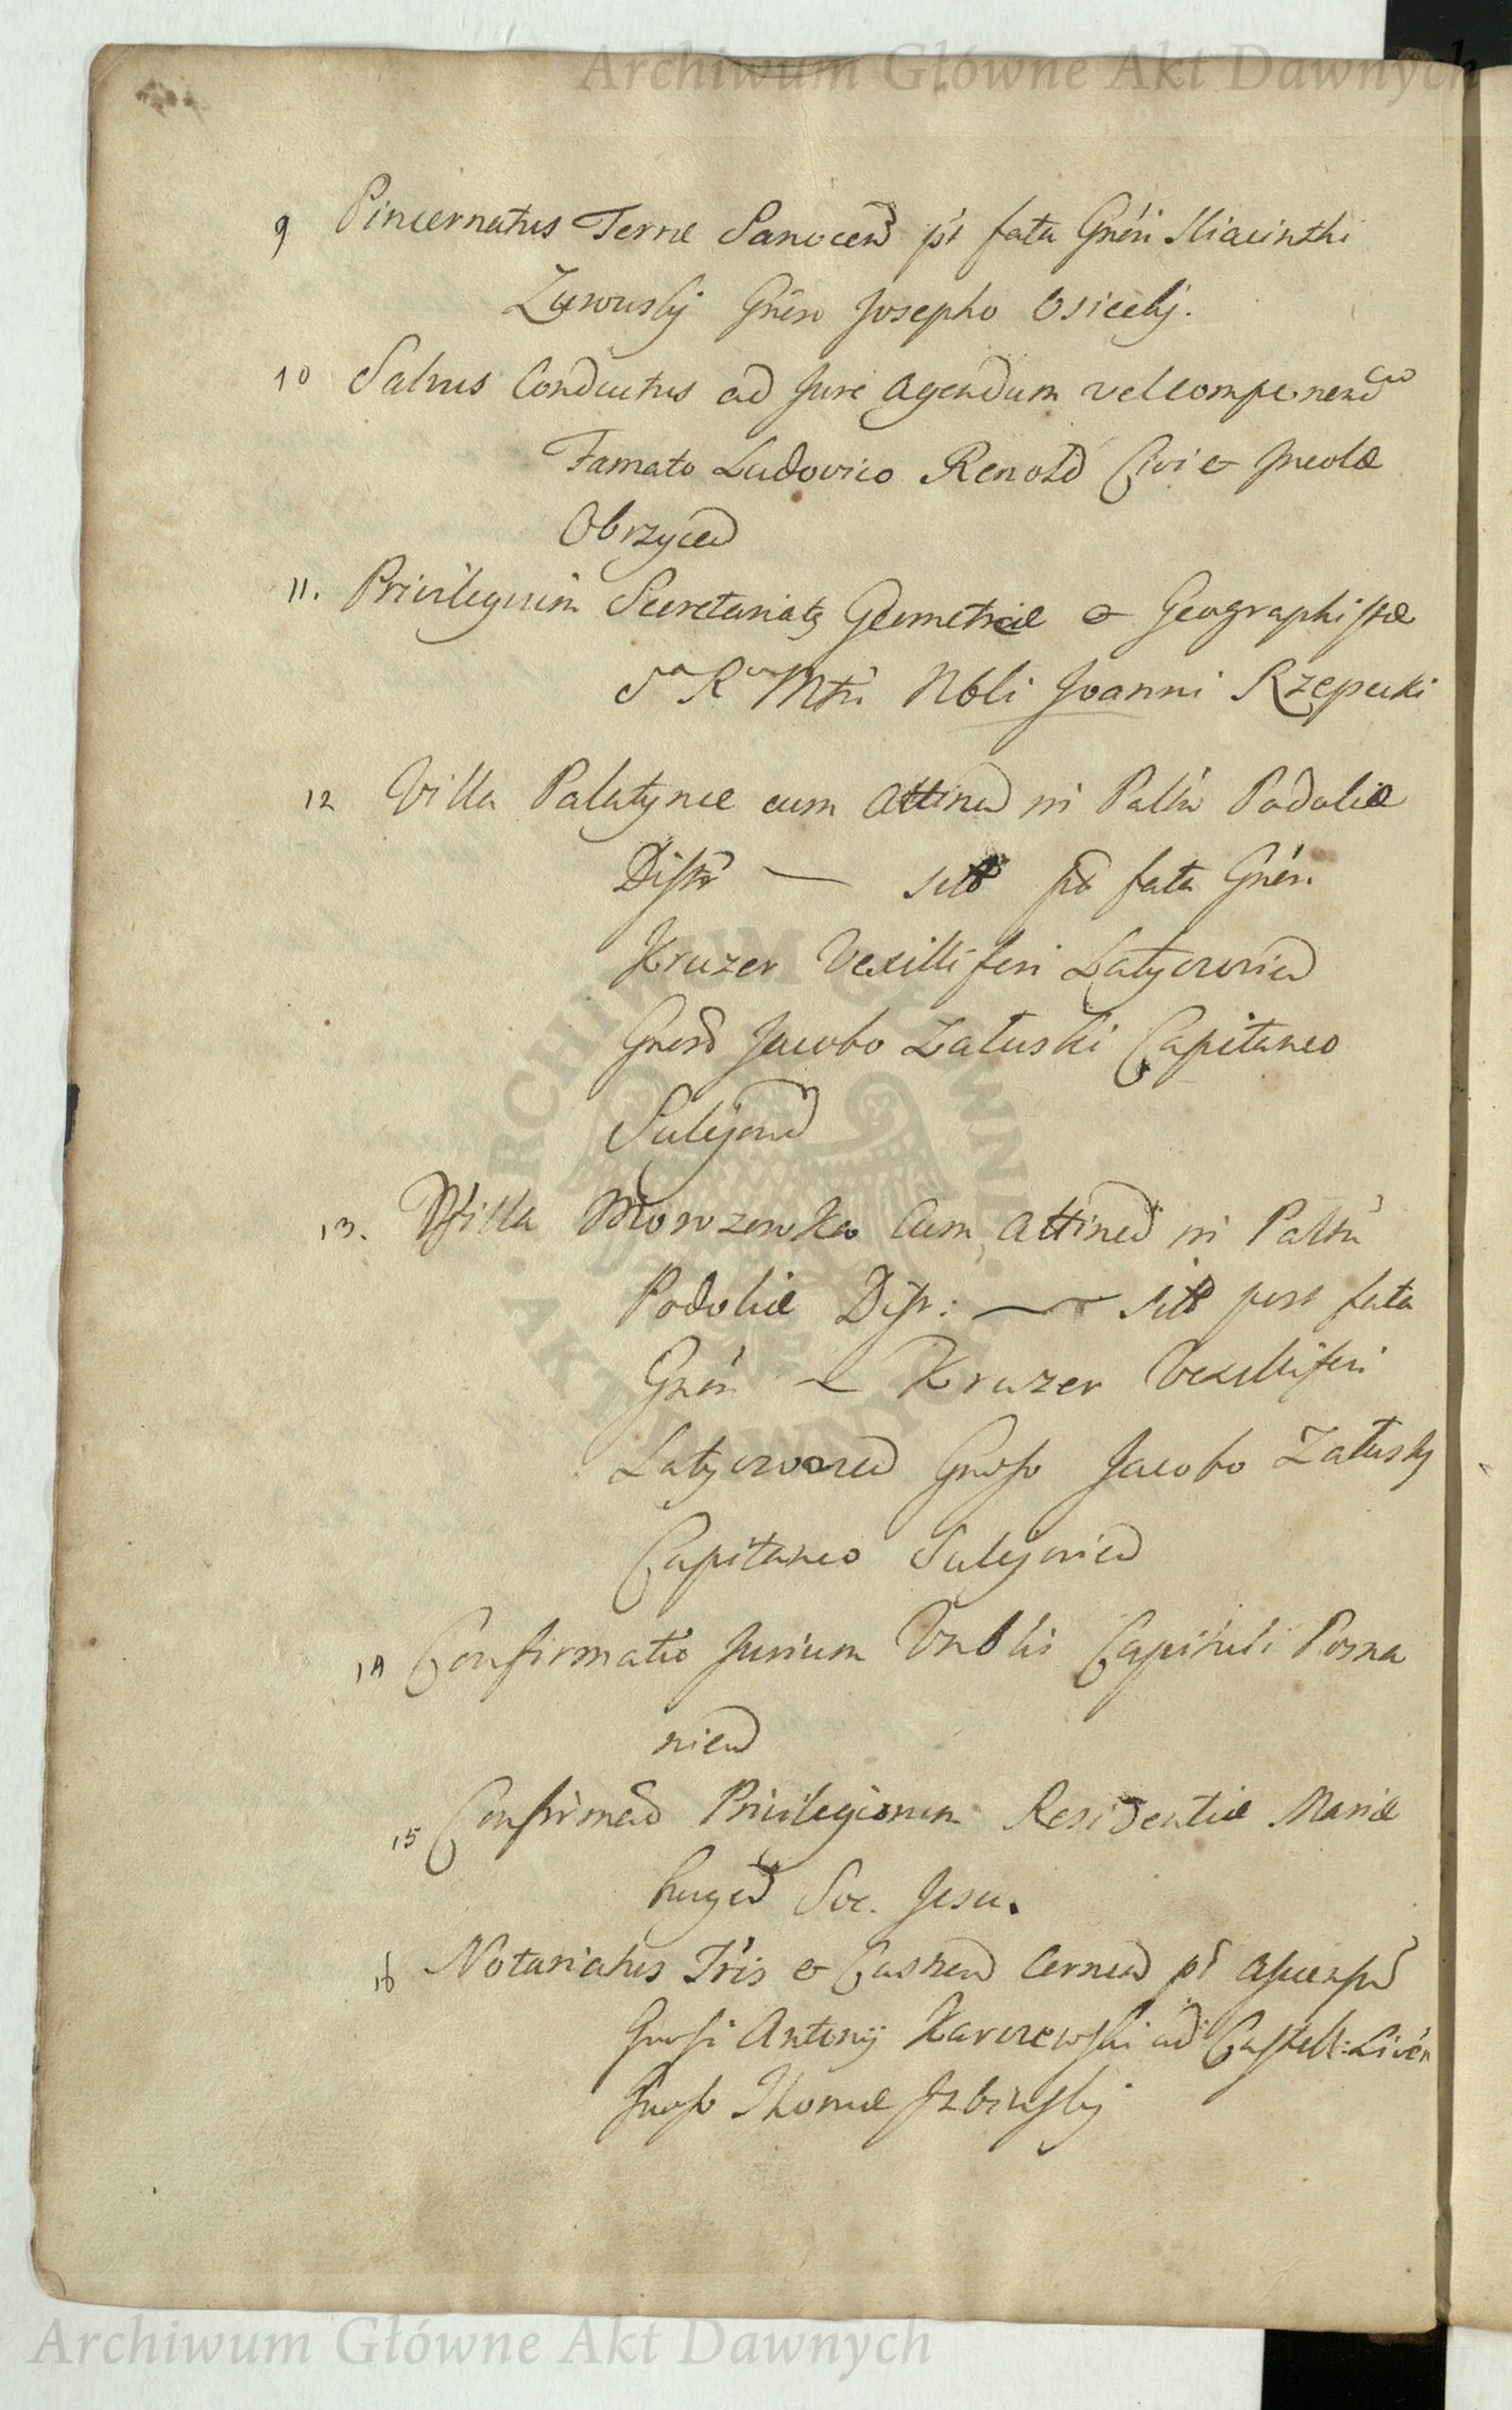 Archiwum Główne Akt Dawnych
9 Pincernatus Terræ Sanocen pt fata Gnėri Hiacinthi
Żurowsky Gnėro Josepho Osiecky.
10 Salvus Conductus ad Jure agendum vel componend
Famato Ludovico Renold Civi & Incolæ
Obrzycen
11. Privilegium Secretariatg Geometræ & Geographistæ
Sa Ra Mtti Nbli Joanni Rzepecki
12 Villa Palatynce cum attinen in Pallu Podoliæ
Distr — sita pt fata Gnėri
Kruzer Vexilliferi Latyczovien
Gneso Jacobo Załuski Capitaneo
Sulejovien
13. Villa Morozowka cum attinen in Paltu
Podoliæ Distr: — sita post fata
Gnėri — Kruzer Vexilliferi
Latyczovien Gnoso Jacobo Załusky
Capitaneo Sulejovien
14 Confirmatio Jurium Vnblis Capituli Posna
nien
15 Confirmao Privilegiorum Residentiæ Mariæ
burgen Soc. Jesu.
16 Notariatus Tris & Castren Cernen pt ascensum
Gnosi Antonij Karczewski ad Castell: Livėn
Gnoso Thomæ Jzbinsky
ARCHIWUM GŁÓWNE · AKT DAWNYCH ·
Archiwum Główne Akt Dawnych